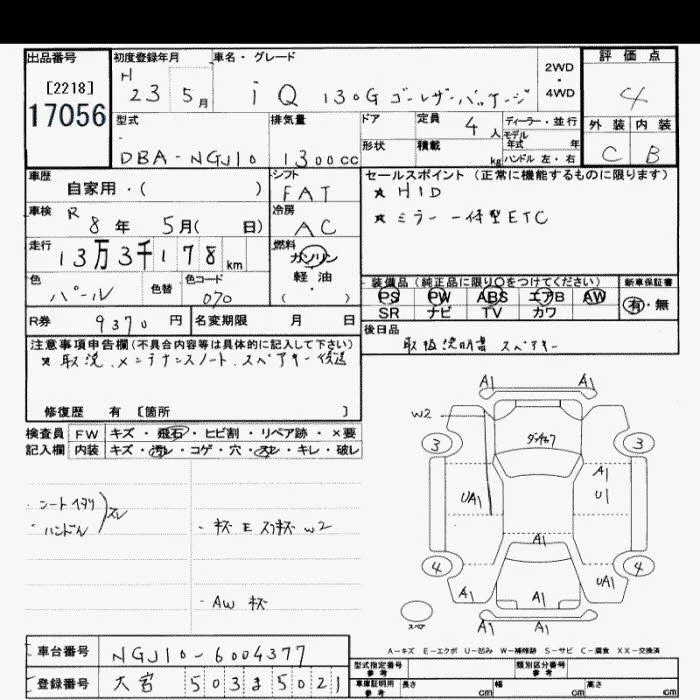 出品番号 初度登録年月 車名・グレード 2WD・4WD 評価点
[2218] H 23 5月 iQ 130G ゴーレザーパッケージ 4
17056
型式 排気量 ドア 定員 4人 ディーラー・並行 外装 内装
モデル年式 年
DBA-NGJ10 1300cc 形状 積載 kg ハンドル 左・右 C B
車歴 シフト セールスポイント (正常に機能するものに限ります)
自家用・( ) FAT ★ HID
車検 R 8年 5月( 日) 冷房 AC ★ ミラー一体型ETC
走行 13万3千178km 燃料 ガソリン
軽・油
( )
色 パール 色替 色コード 070
装備品(純正品に限り○をつけてください) 新車保証書
PS PW ABS エアB AW 有・無
SR ナビ TV カワ
R券 9370円 名変期限 月 日 後日品
取扱説明書 スペアキー
注意事項申告欄(不具合内容等は具体的に記入して下さい)
★ 取説、メンテナンスノート、スペアキー後送
修復歴 有 [箇所 ]
検査員 FW キズ・飛石・ヒビ割・リペア跡・×要
記入欄 内装 キズ・汚レ・コゲ・穴・スレ・キレ・破レ
・シート
・ハンドル スレ
W2
・AW キズ
A1 A1
W2
3 3
UA1 A1
U1
A1
4 4
A1 A1 UA1
A1 A1
スペア
A-キズ E-エクボ U-凹み W-補修跡 S-サビ C-腐食 XX-交換済
車台番号 NGJ10-6004377
登録番号 大宮 503ま5021
型式指定番号 参考 類別区分番号 参考
車庫証明用 参考 長さ cm 幅 cm 高さ cm